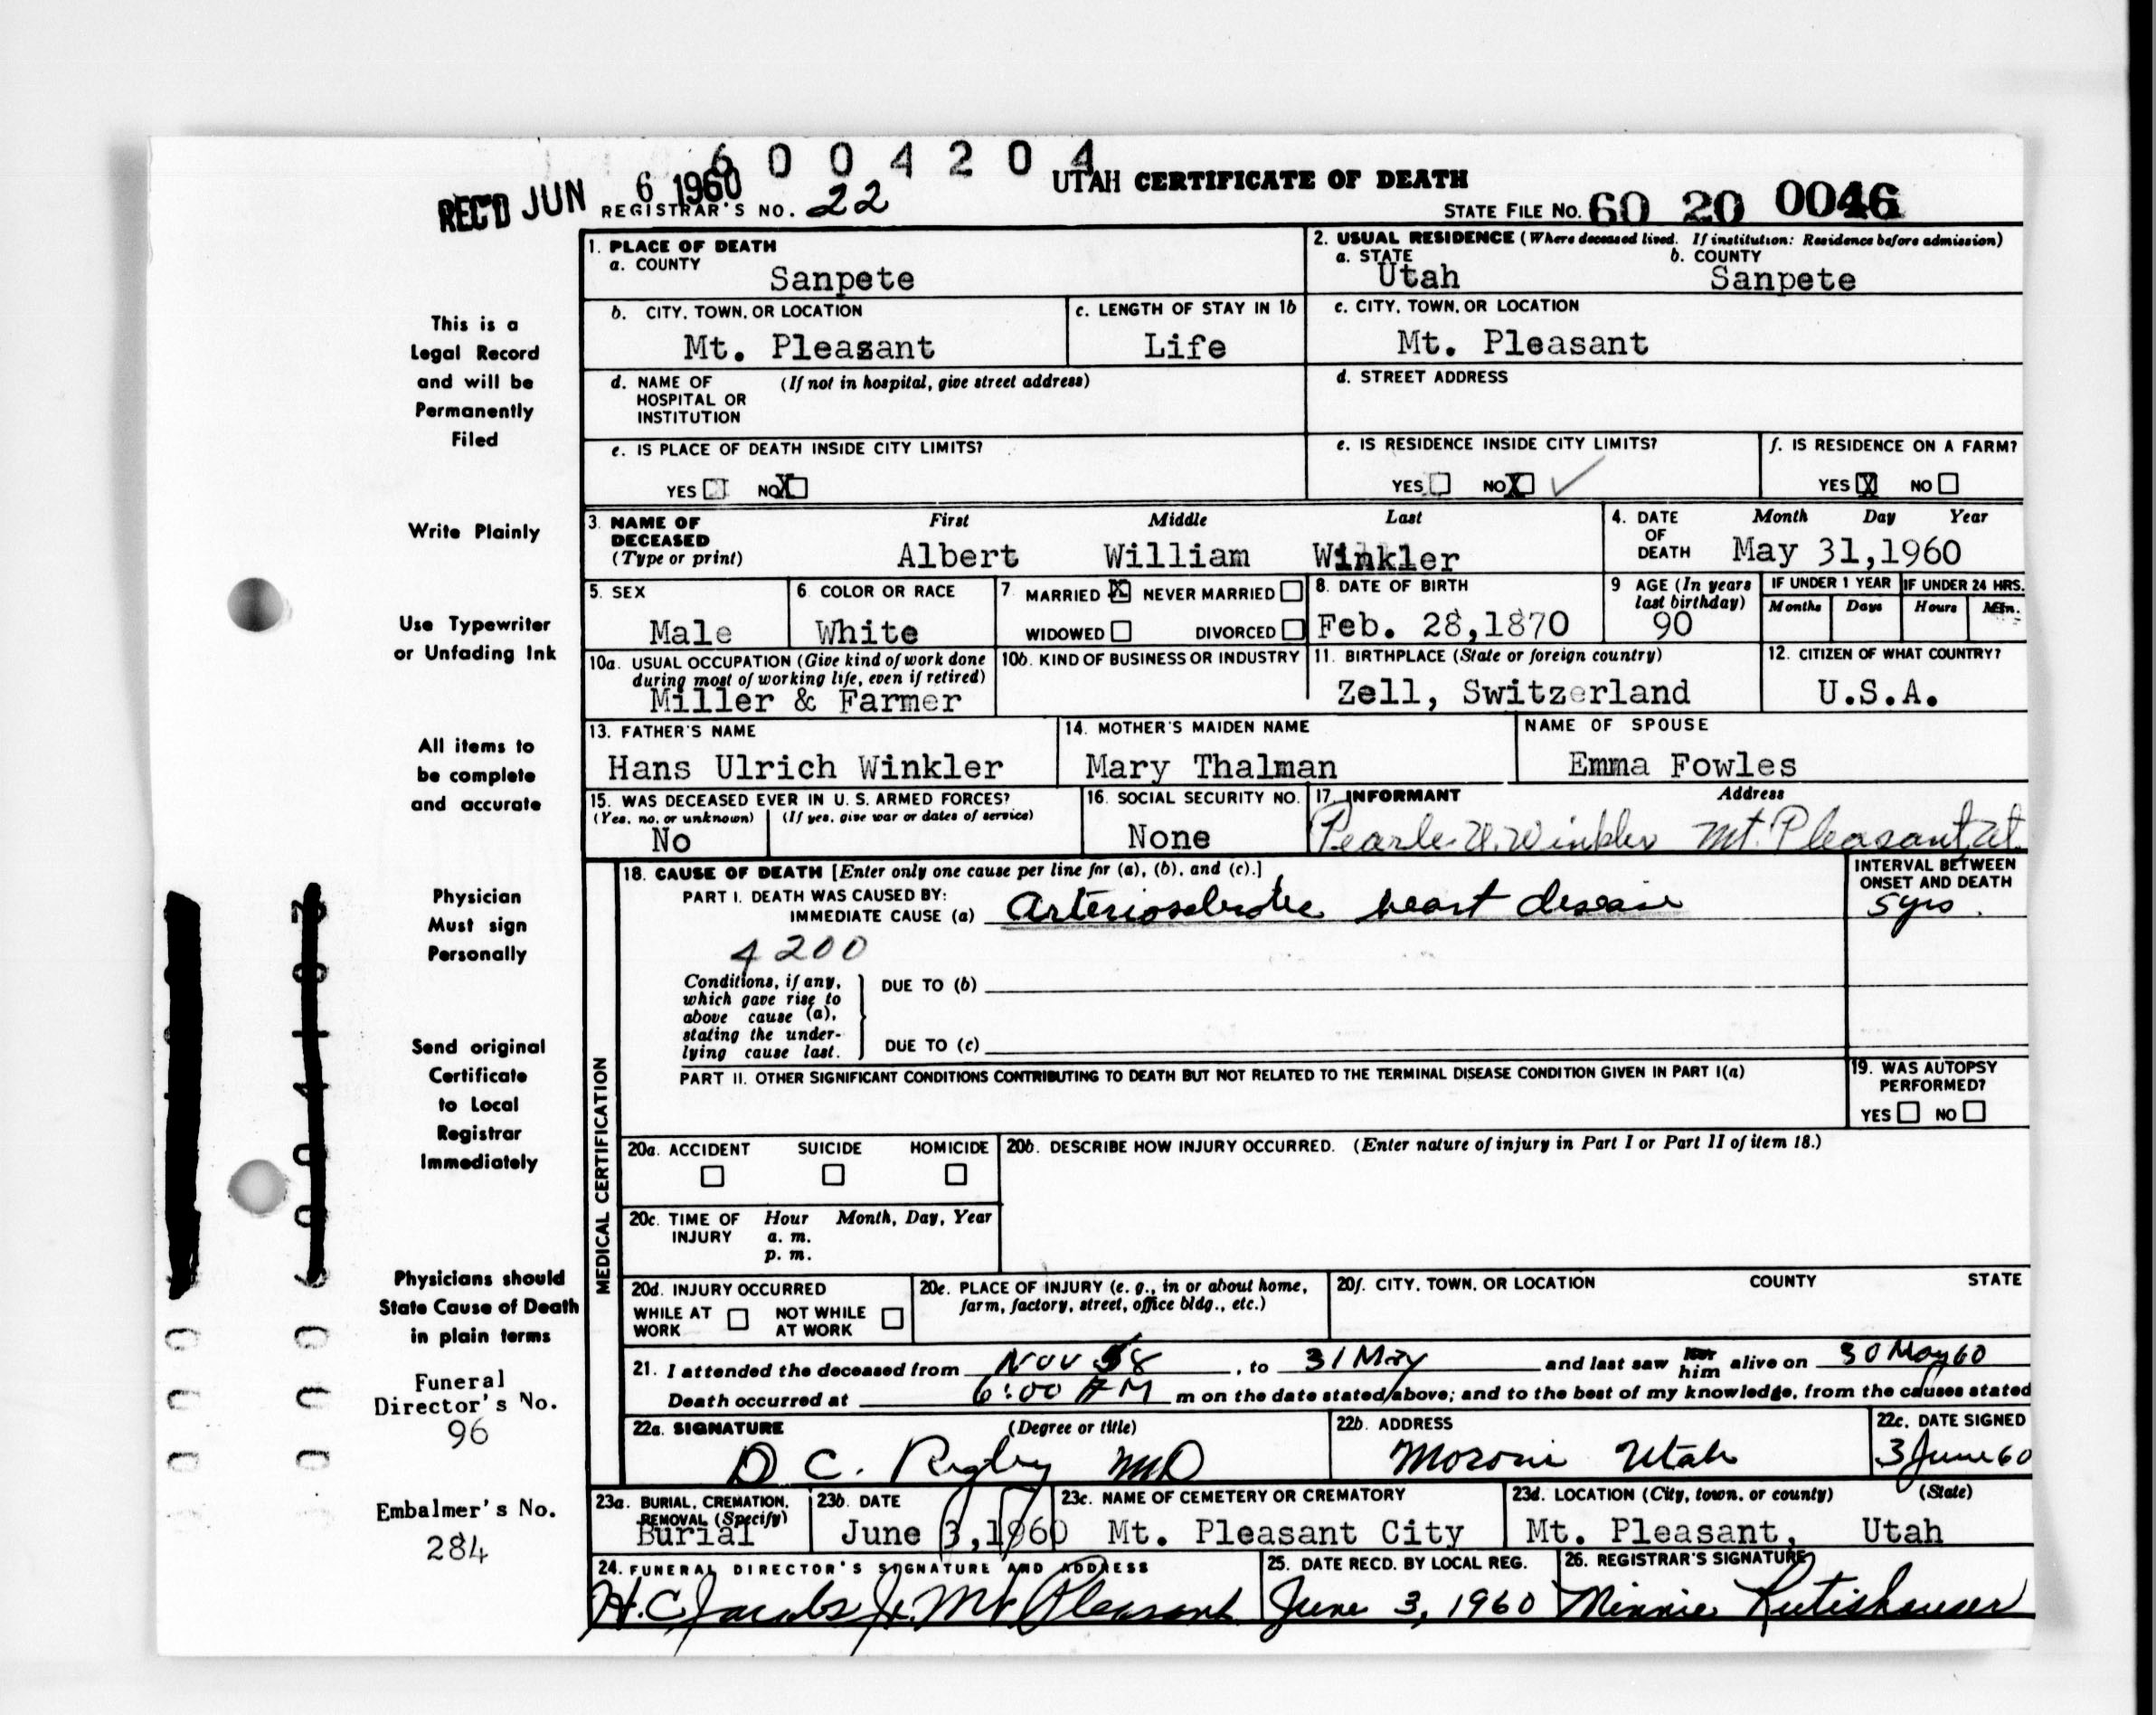 6 0 0 4 2 0 4
REC'D JUN 6 1960
UTAH CERTIFICATE OF DEATH
REGISTRAR'S NO. 22
STATE FILE No. 60 20 0046
1. PLACE OF DEATH
a. COUNTY
Sanpete
2. USUAL RESIDENCE (Where deceased lived. If institution: Residence before admission)
a. STATE b. COUNTY
Utah Sanpete
b. CITY, TOWN, OR LOCATION
Mt. Pleasant
c. LENGTH OF STAY IN 1b
Life
c. CITY, TOWN, OR LOCATION
Mt. Pleasant
d. NAME OF (If not in hospital, give street address)
HOSPITAL OR
INSTITUTION
d. STREET ADDRESS
e. IS PLACE OF DEATH INSIDE CITY LIMITS?
YES NO X
e. IS RESIDENCE INSIDE CITY LIMITS?
YES NO X
f. IS RESIDENCE ON A FARM?
YES X NO
3. NAME OF DECEASED (Type or print)
First Middle Last
Albert William Winkler
4. DATE OF DEATH
Month Day Year
May 31,1960
5. SEX
Male
6. COLOR OR RACE
White
7. MARRIED X NEVER MARRIED
WIDOWED DIVORCED
8. DATE OF BIRTH
Feb. 28,1870
9 AGE (In years last birthday)
90
IF UNDER 1 YEAR IF UNDER 24 HRS.
Months Days Hours Min.
10a. USUAL OCCUPATION (Give kind of work done
during most of working life, even if retired)
Miller & Farmer
10b. KIND OF BUSINESS OR INDUSTRY
11. BIRTHPLACE (State or foreign country)
Zell, Switzerland
12. CITIZEN OF WHAT COUNTRY?
U.S.A.
13. FATHER'S NAME
Hans Ulrich Winkler
14. MOTHER'S MAIDEN NAME
Mary Thalman
NAME OF SPOUSE
Emma Fowles
15. WAS DECEASED EVER IN U. S. ARMED FORCES?
(Yes, no, or unknown) (If yes, give war or dates of service)
No
16. SOCIAL SECURITY NO.
None
17. INFORMANT Address
Pearle W. Winkler Mt. Pleasant, Ut.
18. CAUSE OF DEATH [Enter only one cause per line for (a), (b), and (c).]
INTERVAL BETWEEN
ONSET AND DEATH
PART I. DEATH WAS CAUSED BY:
IMMEDIATE CAUSE (a) Arteriosclerotic heart disease 5 yrs.
4200
Conditions, if any,
which gave rise to
above cause (a),
stating the under-
lying cause last.
DUE TO (b)
DUE TO (c)
PART II. OTHER SIGNIFICANT CONDITIONS CONTRIBUTING TO DEATH BUT NOT RELATED TO THE TERMINAL DISEASE CONDITION GIVEN IN PART I(a)
19. WAS AUTOPSY
PERFORMED?
YES NO
MEDICAL CERTIFICATION
20a. ACCIDENT SUICIDE HOMICIDE
20b. DESCRIBE HOW INJURY OCCURRED. (Enter nature of injury in Part I or Part II of item 18.)
20c. TIME OF INJURY
Hour Month, Day, Year
a. m.
p. m.
20d. INJURY OCCURRED
WHILE AT WORK NOT WHILE AT WORK
20e. PLACE OF INJURY (e. g., in or about home,
farm, factory, street, office bldg., etc.)
20f. CITY, TOWN, OR LOCATION COUNTY STATE
21. I attended the deceased from Nov 58, to 31 May and last saw her him alive on 30 May 60
Death occurred at 6:00 AM m on the date stated above; and to the best of my knowledge, from the causes stated
22a. SIGNATURE (Degree or title)
D C. Rigby MD
22b. ADDRESS
Moroni Utah
22c. DATE SIGNED
3 June 60
23a. BURIAL, CREMATION,
REMOVAL (Specify)
Burial
23b. DATE
June 3,1960
23c. NAME OF CEMETERY OR CREMATORY
Mt. Pleasant City
23d. LOCATION (City, town, or county) (State)
Mt. Pleasant, Utah
24. FUNERAL DIRECTOR'S SIGNATURE AND ADDRESS
H.C. Jacobs Jr. Mt Pleasant
25. DATE RECD. BY LOCAL REG.
June 3, 1960
26. REGISTRAR'S SIGNATURE
Minnie Rutishauser
This is a
Legal Record
and will be
Permanently
Filed
Write Plainly
Use Typewriter
or Unfading Ink
All items to
be complete
and accurate
Physician
Must sign
Personally
Send original
Certificate
to Local
Registrar
Immediately
Physicians should
State Cause of Death
in plain terms
Funeral
Director's No.
96
Embalmer's No.
284